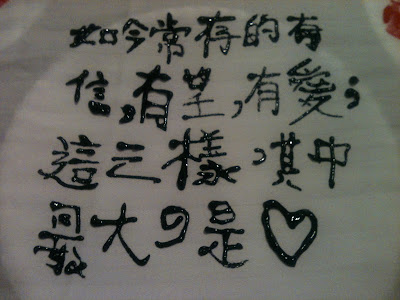 如今常存的有
信,有望,有愛;
這三樣,其中
最大的是♡